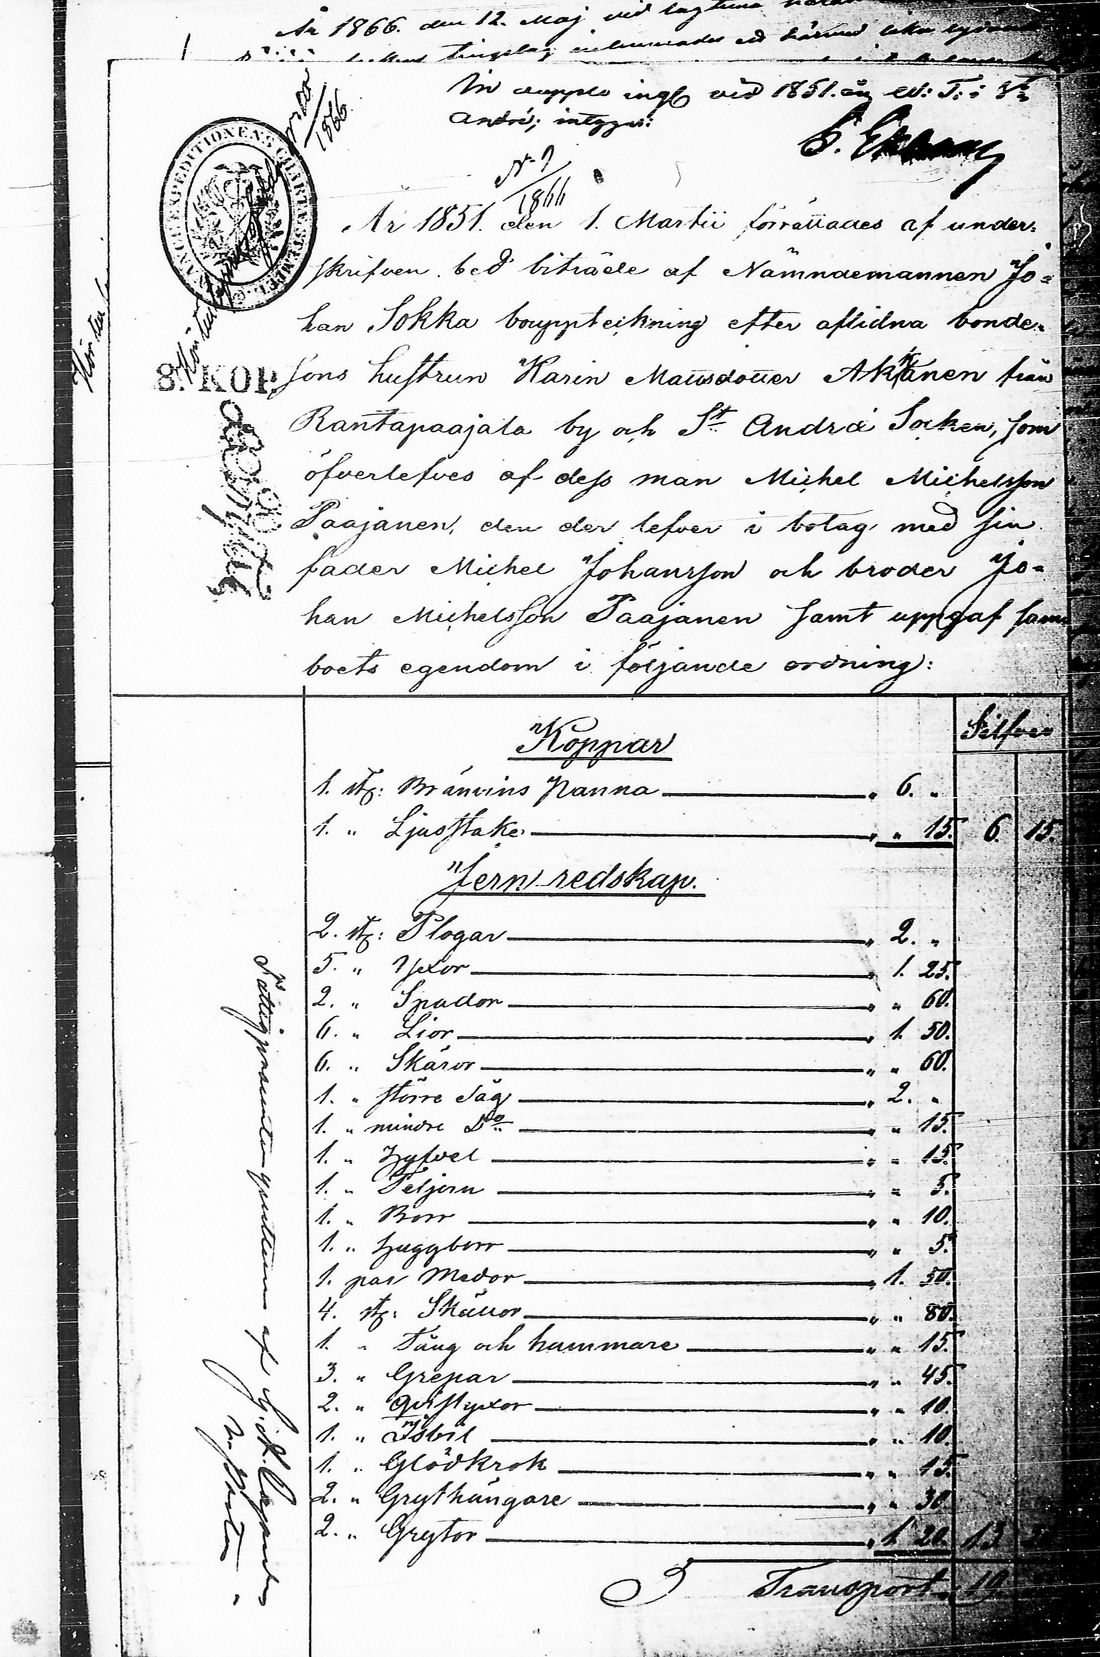 År 1866. den 12. Maj vid lagtima
tingslag
In duplo ingf vid 1851. års
André; intygar:
N. 7
1866
8. KOP.
År 1851. den 1. Martii förrättades af under-
skrifven. med biträde af Nämndemannen Jo-
han Sokka bouppteckning efter aflidna bonde-
sons hustrun Karin Mattsdotter Akkanen från
Rantapaajala by och St. Andreæ Socken, som
öfverlefves af dess man Michel Michelsson
Paajanen, den der lefver i bolag med sin
fader Michel Johansson och broder Jo-
han Michelsson Paajanen samt uppgaf sam-
boets egendom i följande ordning:
Silfver
Koppar
1. st: Bränvins Panna „ 6. „
1. „ Ljusstake „ „ 15. 6. 15.
Jern redskap.
2. st: Plogar „ 2. „
5. „ Yxor „ 1. 25.
2. „ Spador „ „ 60.
6. „ Lior „ 1. 50.
6. „ Skäror „ „ 60.
1. „ större Såg „ 2. „
1. „ mindre Do „ „ 15.
1. „ Hyfvel „ „ 15.
1. „ Teljern „ „ 5.
1. „ Borr „ „ 10.
1. „ Huggborr „ „ 5.
1. par Medor „ 1. 50.
4. st: Skällor „ „ 80.
1. „ Tång och hammare „ „ 15.
3. „ Grepar „ „ 45.
2. „ „ „ 10.
1. „ Isbil „ „ 10.
1. „ Glödkrok „ „ 15.
2. „ Grythängare „ „ 30
2. „ Grytor „ 1. 20. 13
Transport. 19